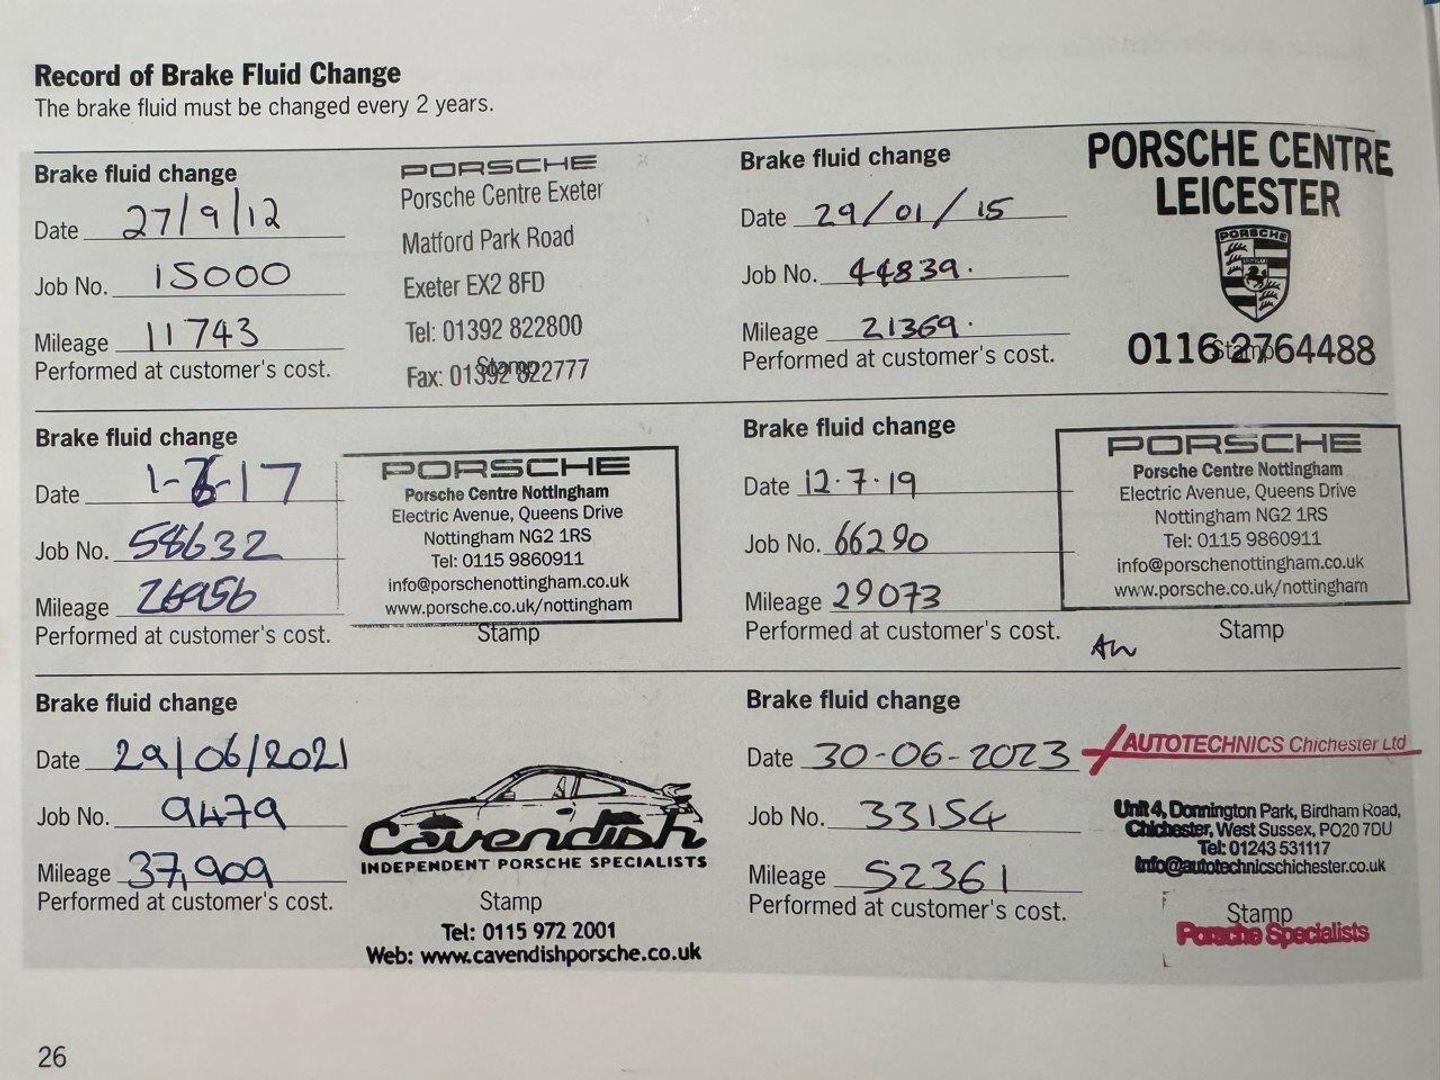 Record of Brake Fluid Change
The brake fluid must be changed every 2 years.
Brake fluid change
Date 27/9/12
Job No. 15000
Mileage 11743
Performed at customer's cost.
PORSCHE
Porsche Centre Exeter
Matford Park Road
Exeter EX2 8FD
Tel: 01392 822800
Stamp
Fax: 01392 822777
Brake fluid change
Date 29/01/15
Job No. 44839.
Mileage 21369.
Performed at customer's cost.
PORSCHE CENTRE
LEICESTER
PORSCHE
0116 2764488
Stamp
Brake fluid change
Date 1-6-17
Job No. 58632
Mileage 26956
Performed at customer's cost.
PORSCHE
Porsche Centre Nottingham
Electric Avenue, Queens Drive
Nottingham NG2 1RS
Tel: 0115 9860911
info@porschenottingham.co.uk
www.porsche.co.uk/nottingham
Stamp
Brake fluid change
Date 12.7.19
Job No. 66290
Mileage 29073
Performed at customer's cost.
AW
PORSCHE
Porsche Centre Nottingham
Electric Avenue, Queens Drive
Nottingham NG2 1RS
Tel: 0115 9860911
info@porschenottingham.co.uk
www.porsche.co.uk/nottingham
Stamp
Brake fluid change
Date 29/06/2021
Job No. 9479
Mileage 37,909
Performed at customer's cost.
Cavendish
INDEPENDENT PORSCHE SPECIALISTS
Stamp
Tel: 0115 972 2001
Web: www.cavendishporsche.co.uk
Brake fluid change
Date 30-06-2023
Job No. 33154
Mileage 52361
Performed at customer's cost.
AUTOTECHNICS Chichester Ltd
Unit 4, Donnington Park, Birdham Road,
Chichester, West Sussex, PO20 7DU
Tel: 01243 531117
Info@autotechnicschichester.co.uk
Stamp
Porsche Specialists
26